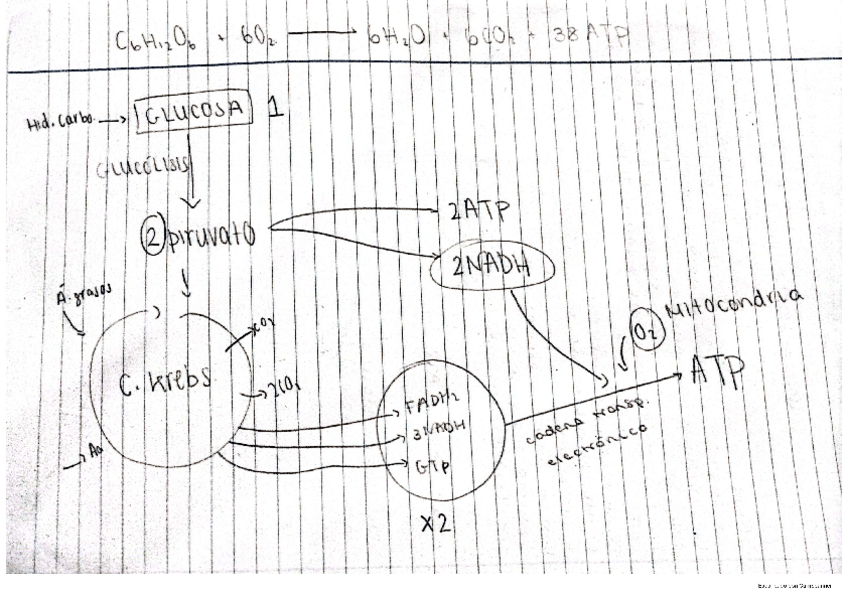 C6H12O6 + 6O2 → 6H2O + 6CO2 + 38 ATP
Hid. Carbo. → GLUCOSA 1
GLUCÓLISIS
2 piruvato
2ATP
2NADH
A. grasos
C. Krebs
CO2
2CO2
Aa
FADH2
3NADH
GTP
X2
O2 Mitocondria
ATP
cadena transp.
electrónico